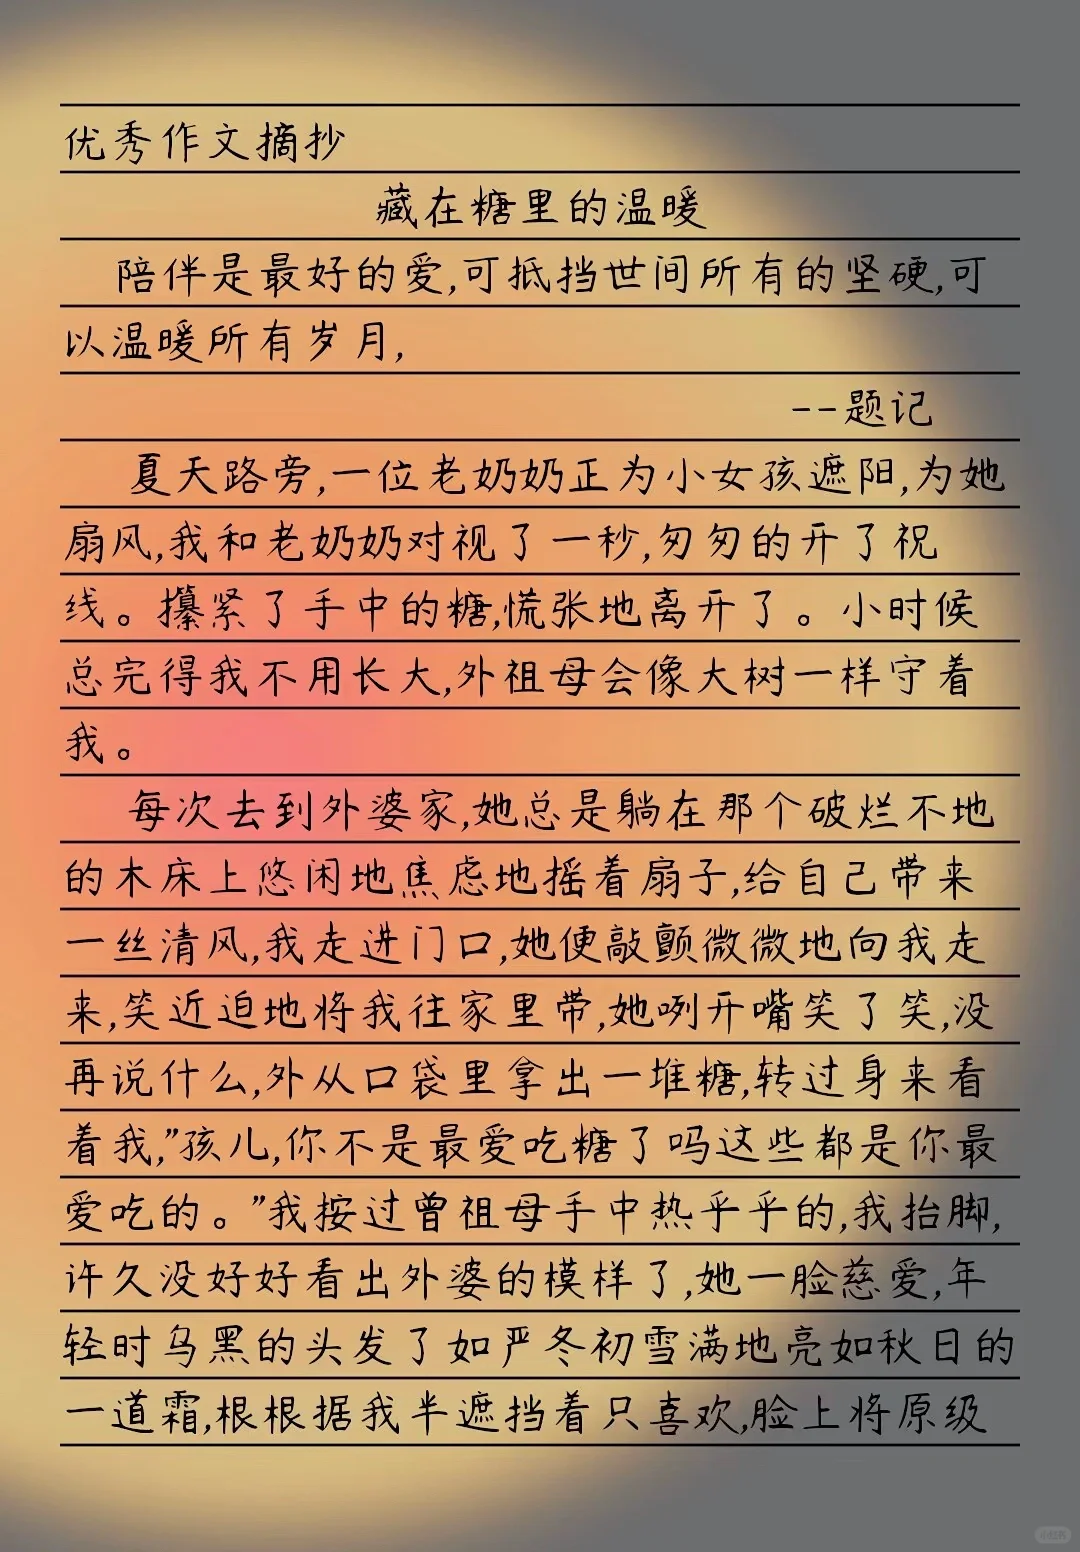 优秀作文摘抄
藏在糖里的温暖
陪伴是最好的爱,可抵挡世间所有的坚硬,可
以温暖所有岁月,
--题记
夏天路旁,一位老奶奶正为小女孩遮阳,为她
扇风,我和老奶奶对视了一秒,匆匆的开了祝
线。攥紧了手中的糖,慌张地离开了。小时候
总完得我不用长大,外祖母会像大树一样守着
我。
每次去到外婆家,她总是躺在那个破烂不地
的木床上悠闲地焦虑地摇着扇子,给自己带来
一丝清风,我走进门口,她便敲颤微微地向我走
来,笑近迫地将我往家里带,她咧开嘴笑了笑,没
再说什么,外从口袋里拿出一堆糖,转过身来看
着我,”孩儿,你不是最爱吃糖了吗这些都是你最
爱吃的。”我按过曾祖母手中热乎乎的,我抬脚,
许久没好好看出外婆的模样了,她一脸慈爱,年
轻时乌黑的头发了如严冬初雪满地亮如秋日的
一道霜,根根据我半遮挡着只喜欢,脸上将原级